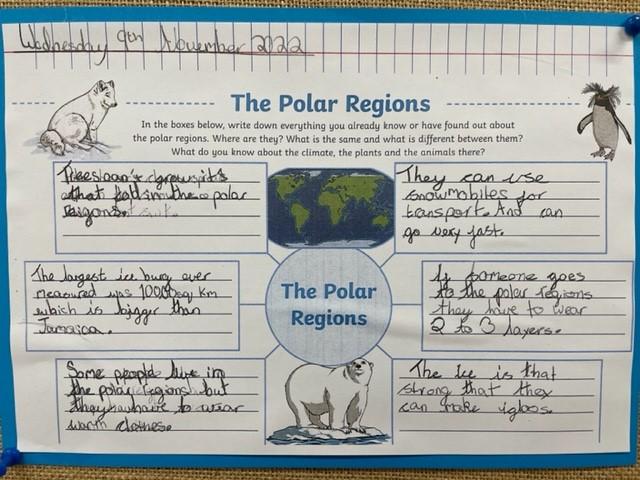 Wednesday 9th November 2022
The Polar Regions
In the boxes below, write down everything you already know or have found out about
the polar regions. Where are they? What is the same and what is different between them?
What do you know about the climate, the plants and the animals there?
Trees
that in the polar
They can use
snowmobiles for
transport. And can
go very fast.
The largest ice burg ever
measured was km
which is bigger than
Jamaica.
The Polar
Regions
If someone goes
to the polar regions
they have to wear
2 to 3 layers.
Some people live in
the polar regions but
they have to wear
warm clothes.
The Ice is that
strong that they
can make igloos.